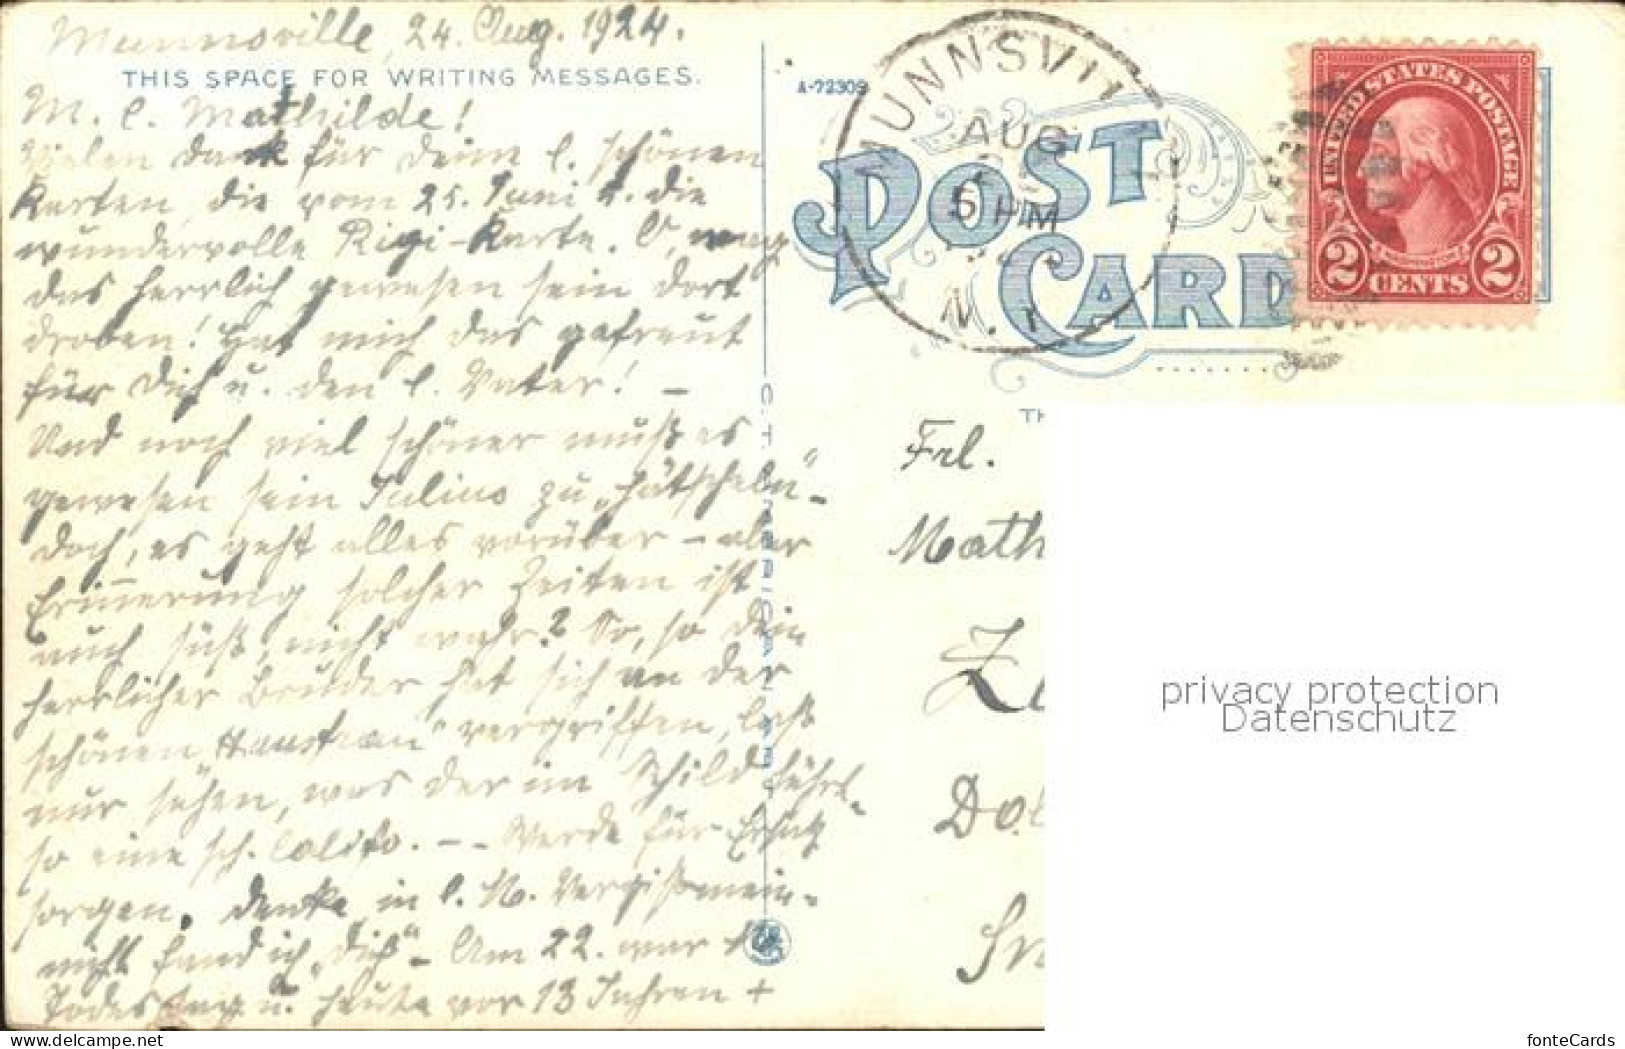 Munnsville, 24. Aug. 1924.
THIS SPACE FOR WRITING MESSAGES.
M. l. Mathilde!
Vielen dank für deine l. schönen
Karten, die vom 25. Juni u. die
wundervolle Rigi-Karte. O, mag
das herrlich gewesen sein dort
droben! Hat mich das gefreut
für Dich u. den l. Vater! –
Und noch viel schöner muß es
gewesen sein Julius zu „hätscheln"-
doch, es geht alles vorüber – aber
Erinnerung solcher Zeiten ist
auch süß, nicht wahr? So, so dein
herrlicher Bruder hat sich an der
schönen „Hausfrau" vergriffen, laß
nur sehen, was der im Schild führt-
so eine sch. – – Werde für Ersatz
sorgen, denke, in l. N. Vergißmein-
nicht fand ich „Dich"- Am 22. war
Todestag u. heute vor 13 Jahren +
A-72309
POST CARD
MUNNSVILL
AUG
5 PM
N. Y.
UNITED STATES POSTAGE
2 CENTS 2
C. T. AMERICAN ART
TH
Frl.
Math
Dol
privacy protection
Datenschutz
www.delcampe.net
fonteCards